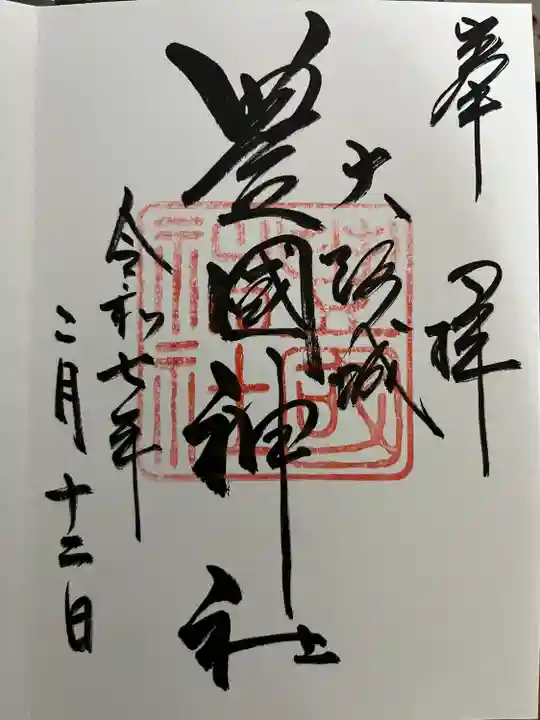 奉拝
大阪城
豊國神社
令和七年
二月十二日
豊國
神社